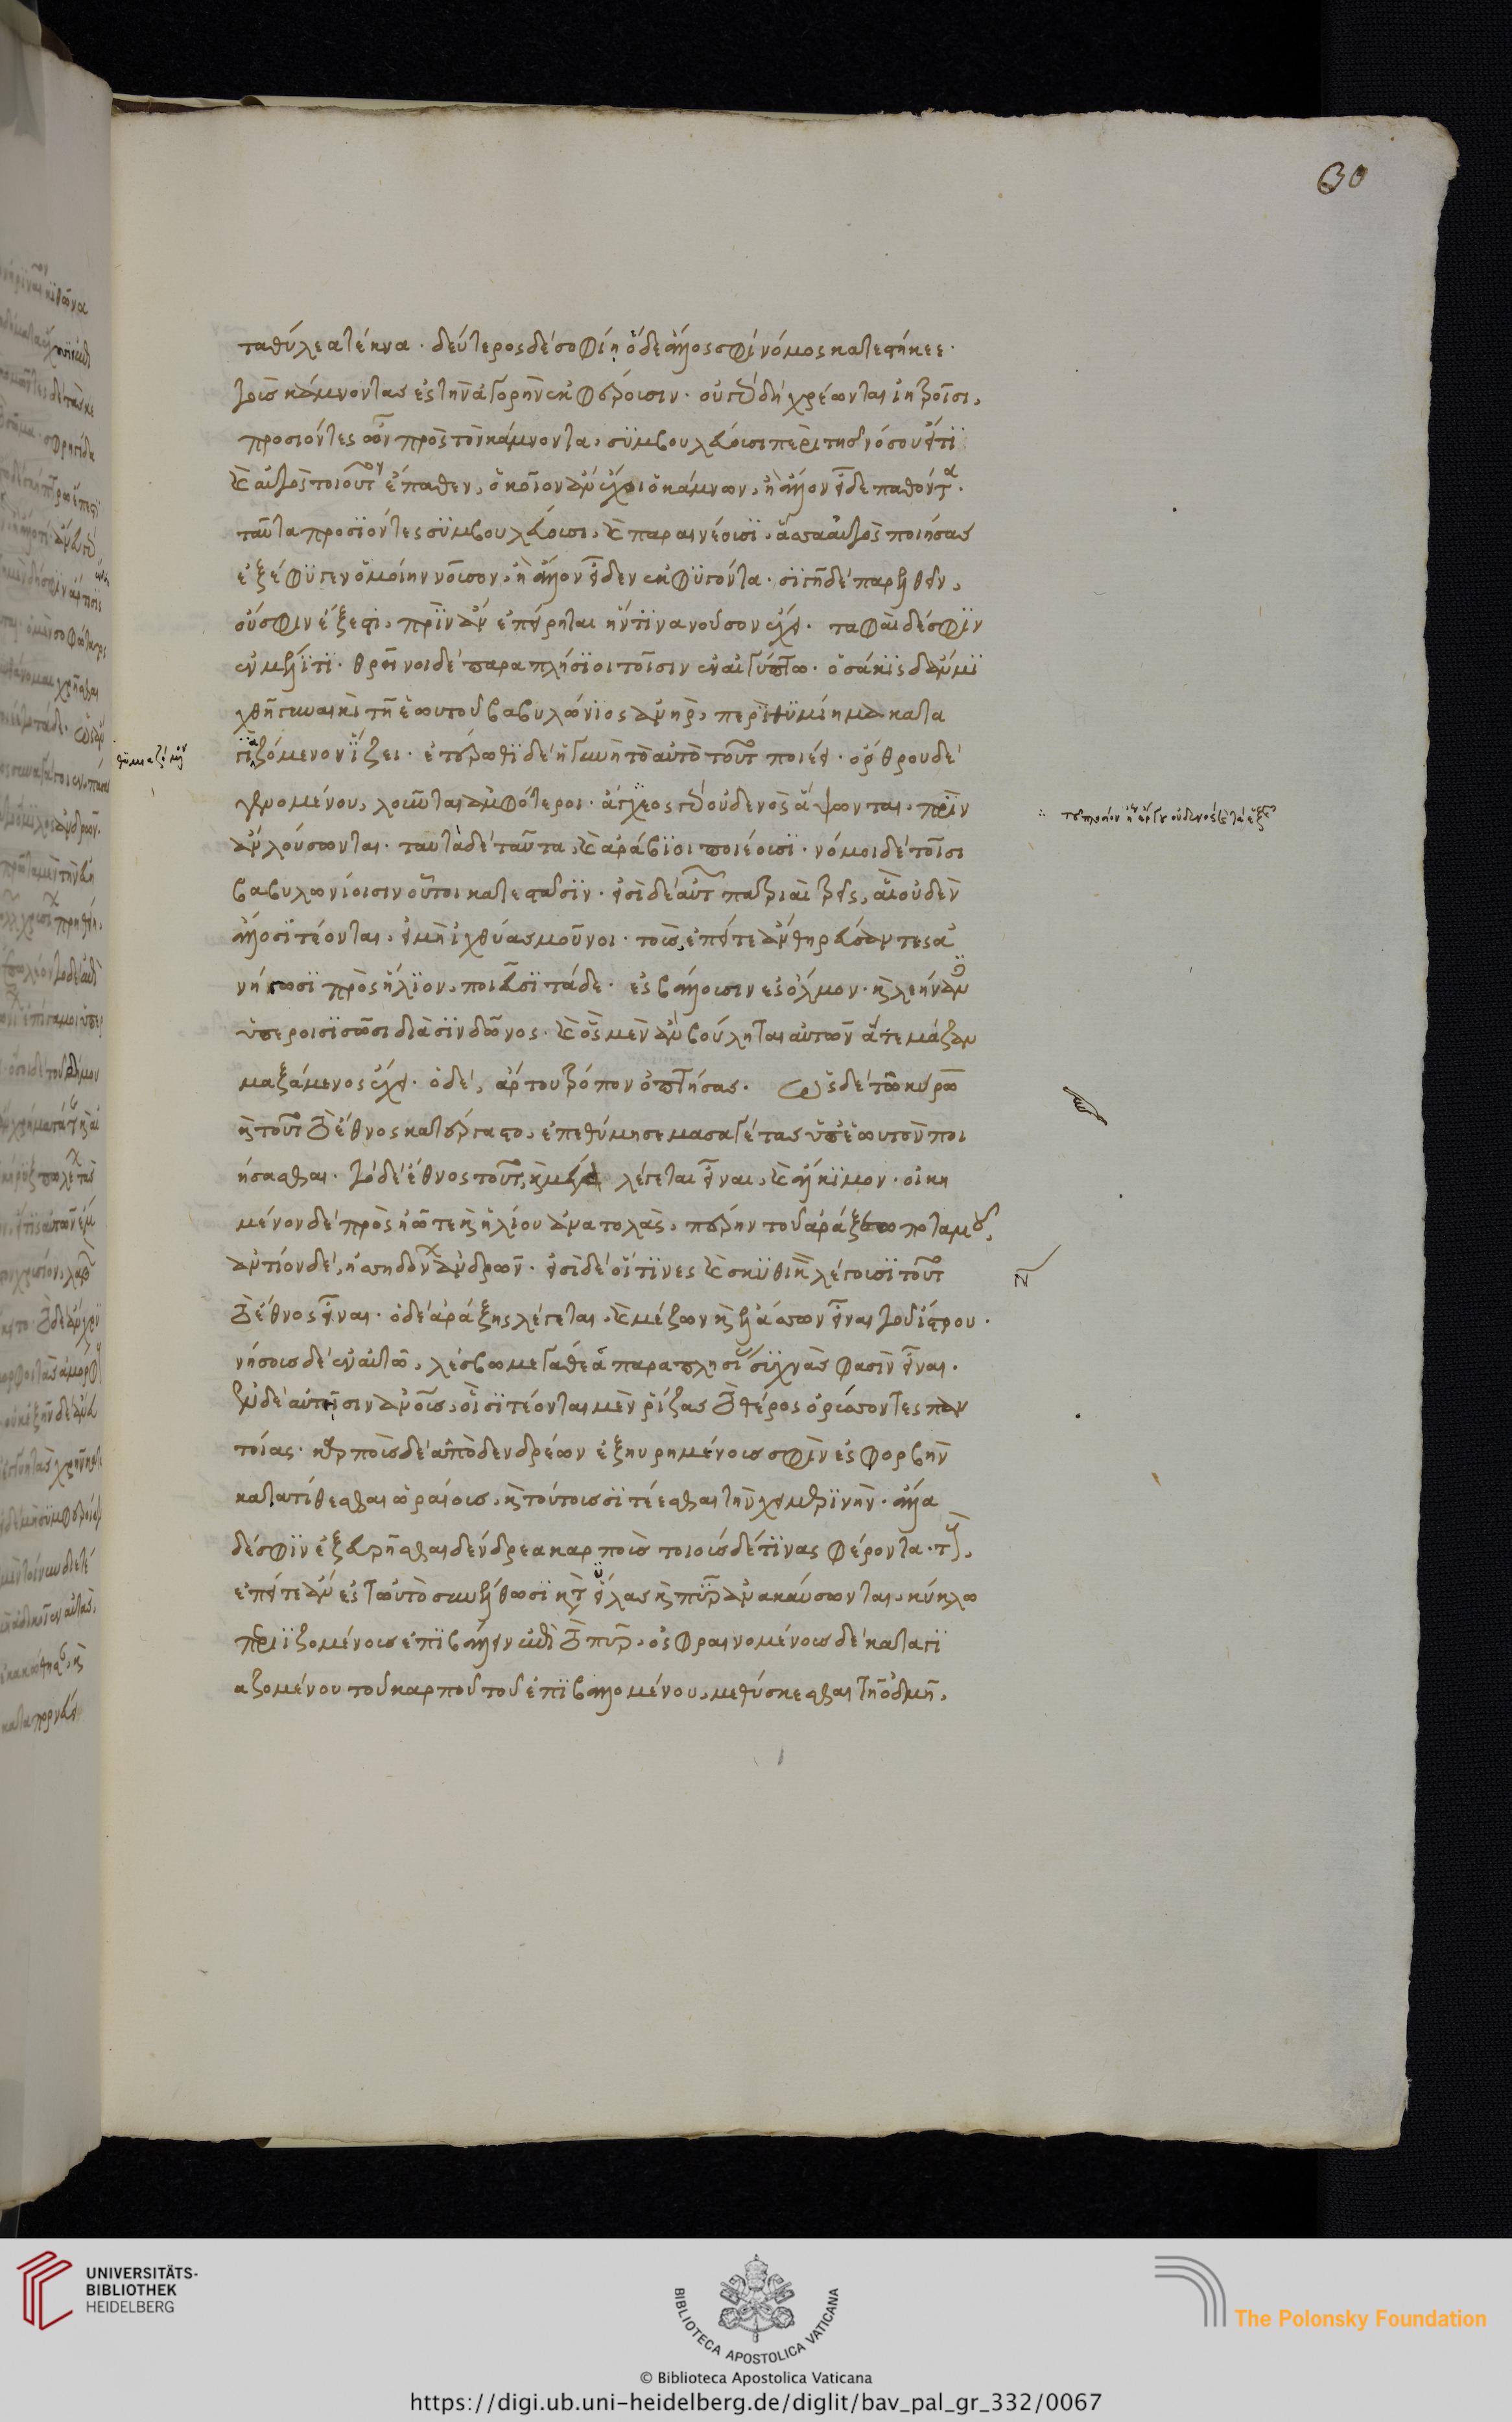 τα θήλεα τέκνα. δεύτερος δὲ σοφίῃ ὅδε ἄλλος σφι νόμος κατεστήκεε.
τοὺς κάμνοντας ἐς τὴν ἀγορὴν ἐκφορέουσιν. οὐ γὰρ δὴ χρέωνται ἰητροῖσι,
προσιόντες ὦν πρὸς τὸν κάμνοντα, συμβουλεύουσι περὶ τῆς νόσου εἴ τι
καὶ αὐτὸς τοιοῦτον ἔπαθεν, ὁκοῖον ἂν ἔχοι ὁ κάμνων, ἢ ἄλλον εἶδε παθόντα.
ταῦτα προσιόντες συμβουλεύουσι, καὶ παραινέουσι, ἅσσα αὐτὸς ποιήσας
ἐξέφυγεν ὁμοίην νοῦσον, ἢ ἄλλον εἶδεν ἐκφυγόντα. σιγῇ δὲ παρελθεῖν,
οὔ σφιν ἔξεστι, πρὶν ἂν ἐπείρηται ἥντινα νοῦσον ἔχει. ταφαὶ δέ σφιν
ἐν μέλιτι. θρῆνοι δὲ παραπλήσιοι τοῖσιν ἐν αἰγύπτω. ὁσάκις δ' ἂν μι
χθῇ γυναικὶ τῇ ἑωυτοῦ βαβυλώνιος ἀνὴρ, περὶ θυμίημα κατα
γιζόμενον ἵζει. ἑτέρωθι δὲ ἡ γυνὴ τὸ αὐτὸ τοῦτο ποιέει. ὄρθρου δὲ
γενομένου, λοῦνται ἀμφότεροι. ἄγγεος γὰρ οὐδενὸς ἅψονται, πρὶν
ἂν λούσωνται. ταυτὰ δὲ ταῦτα, καὶ ἀράβιοι ποιέουσι. νόμοι δὲ τοῖσι
βαβυλωνίοισιν οὗτοι κατεστᾶσιν. εἰσὶ δὲ αὐτῶν πατριαὶ τρεῖς, αἳ οὐδὲν
ἄλλο σιτέονται, εἰ μὴ ἰχθύας μοῦνοι. τοὺς, ἐπείτε ἂν θηρεύσαντες α
νήνωσι πρὸς ἥλιον, ποιεῦσι τάδε. ἐσβάλλουσιν ἐς ὅλμον. καὶ λεήναντες
ὑπέροισι σῶσι διὰ σινδῶνος. καὶ ὃς μὲν ἂν βούληται αὐτῶν ἅτε μάζαν
μαξάμενος ἔχει. ὁ δὲ, ἄρτου τρόπον ὀπτήσας. ὡς δὲ τῶ κύρω
καὶ τοῦτο τὸ ἔθνος κατέργαστο, ἐπεθύμησε μασαγέτας ὑπ' ἑωυτὸν ποι
ήσασθαι. τὸ δὲ ἔθνος τοῦτο, καὶ μέγα λέγεται εἶναι, καὶ ἄλκιμον. οἰκη
μένον δὲ πρὸς ἠῶ τε καὶ ἡλίου ἀνατολὰς, πέρην τοῦ ἀράξεω ποταμοῦ,
ἀντίον δὲ, ἡσσηδόνων ἀνδρῶν. εἰσὶ δὲ οἵτινες καὶ σκυθικὸν λέγουσι τοῦτο
τὸ ἔθνος εἶναι. ὁ δὲ ἀράξης λέγεται, καὶ μέζων καὶ ἐλάσσων εἶναι τοῦ ἴστρου.
νήσους δὲ ἐν αὐτῶ, λέσβω μεγάθεα παραπλησίους συχνὰς φασὶν εἶναι.
ἐν δὲ αὐτῇσιν ἀνθρώπους, οἳ σιτέονται μὲν ῥίζας τὸ θέρος ὀρύσσοντες παν
τοίας. καρποὺς δὲ ἀπὸ δενδρέων ἐξηυρημένους σφιν ἐς φορβὴν
κατατίθεσθαι ὡραίους, καὶ τούτους σιτέεσθαι τὴν χειμερινήν. ἄλλα
δέ σφιν ἐξευρῆσθαι δένδρεα καρποὺς τοιούσδέ τινας φέροντα. τοὺς,
ἐπείτε ἂν ἐς τωὐτὸ συνέλθωσι κατὰ εἴλας καὶ πῦρ ἀνακαύσωνται, κύκλω
περιιζομένους ἐπιβάλλειν ἐπὶ τὸ πῦρ, ὀσφραινομένους δὲ καταγι
αζομένου τοῦ καρποῦ τοῦ ἐπιβαλλομένου, μεθύσκεσθαι τῇ ὀδμῇ,
UNIVERSITÄTS-
BIBLIOTHEK
HEIDELBERG
BIBLIOTECA APOSTOLICA VATICANA
The Polonsky Foundation
© Biblioteca Apostolica Vaticana
https://digi.ub.uni-heidelberg.de/diglit/bav_pal_gr_332/0067